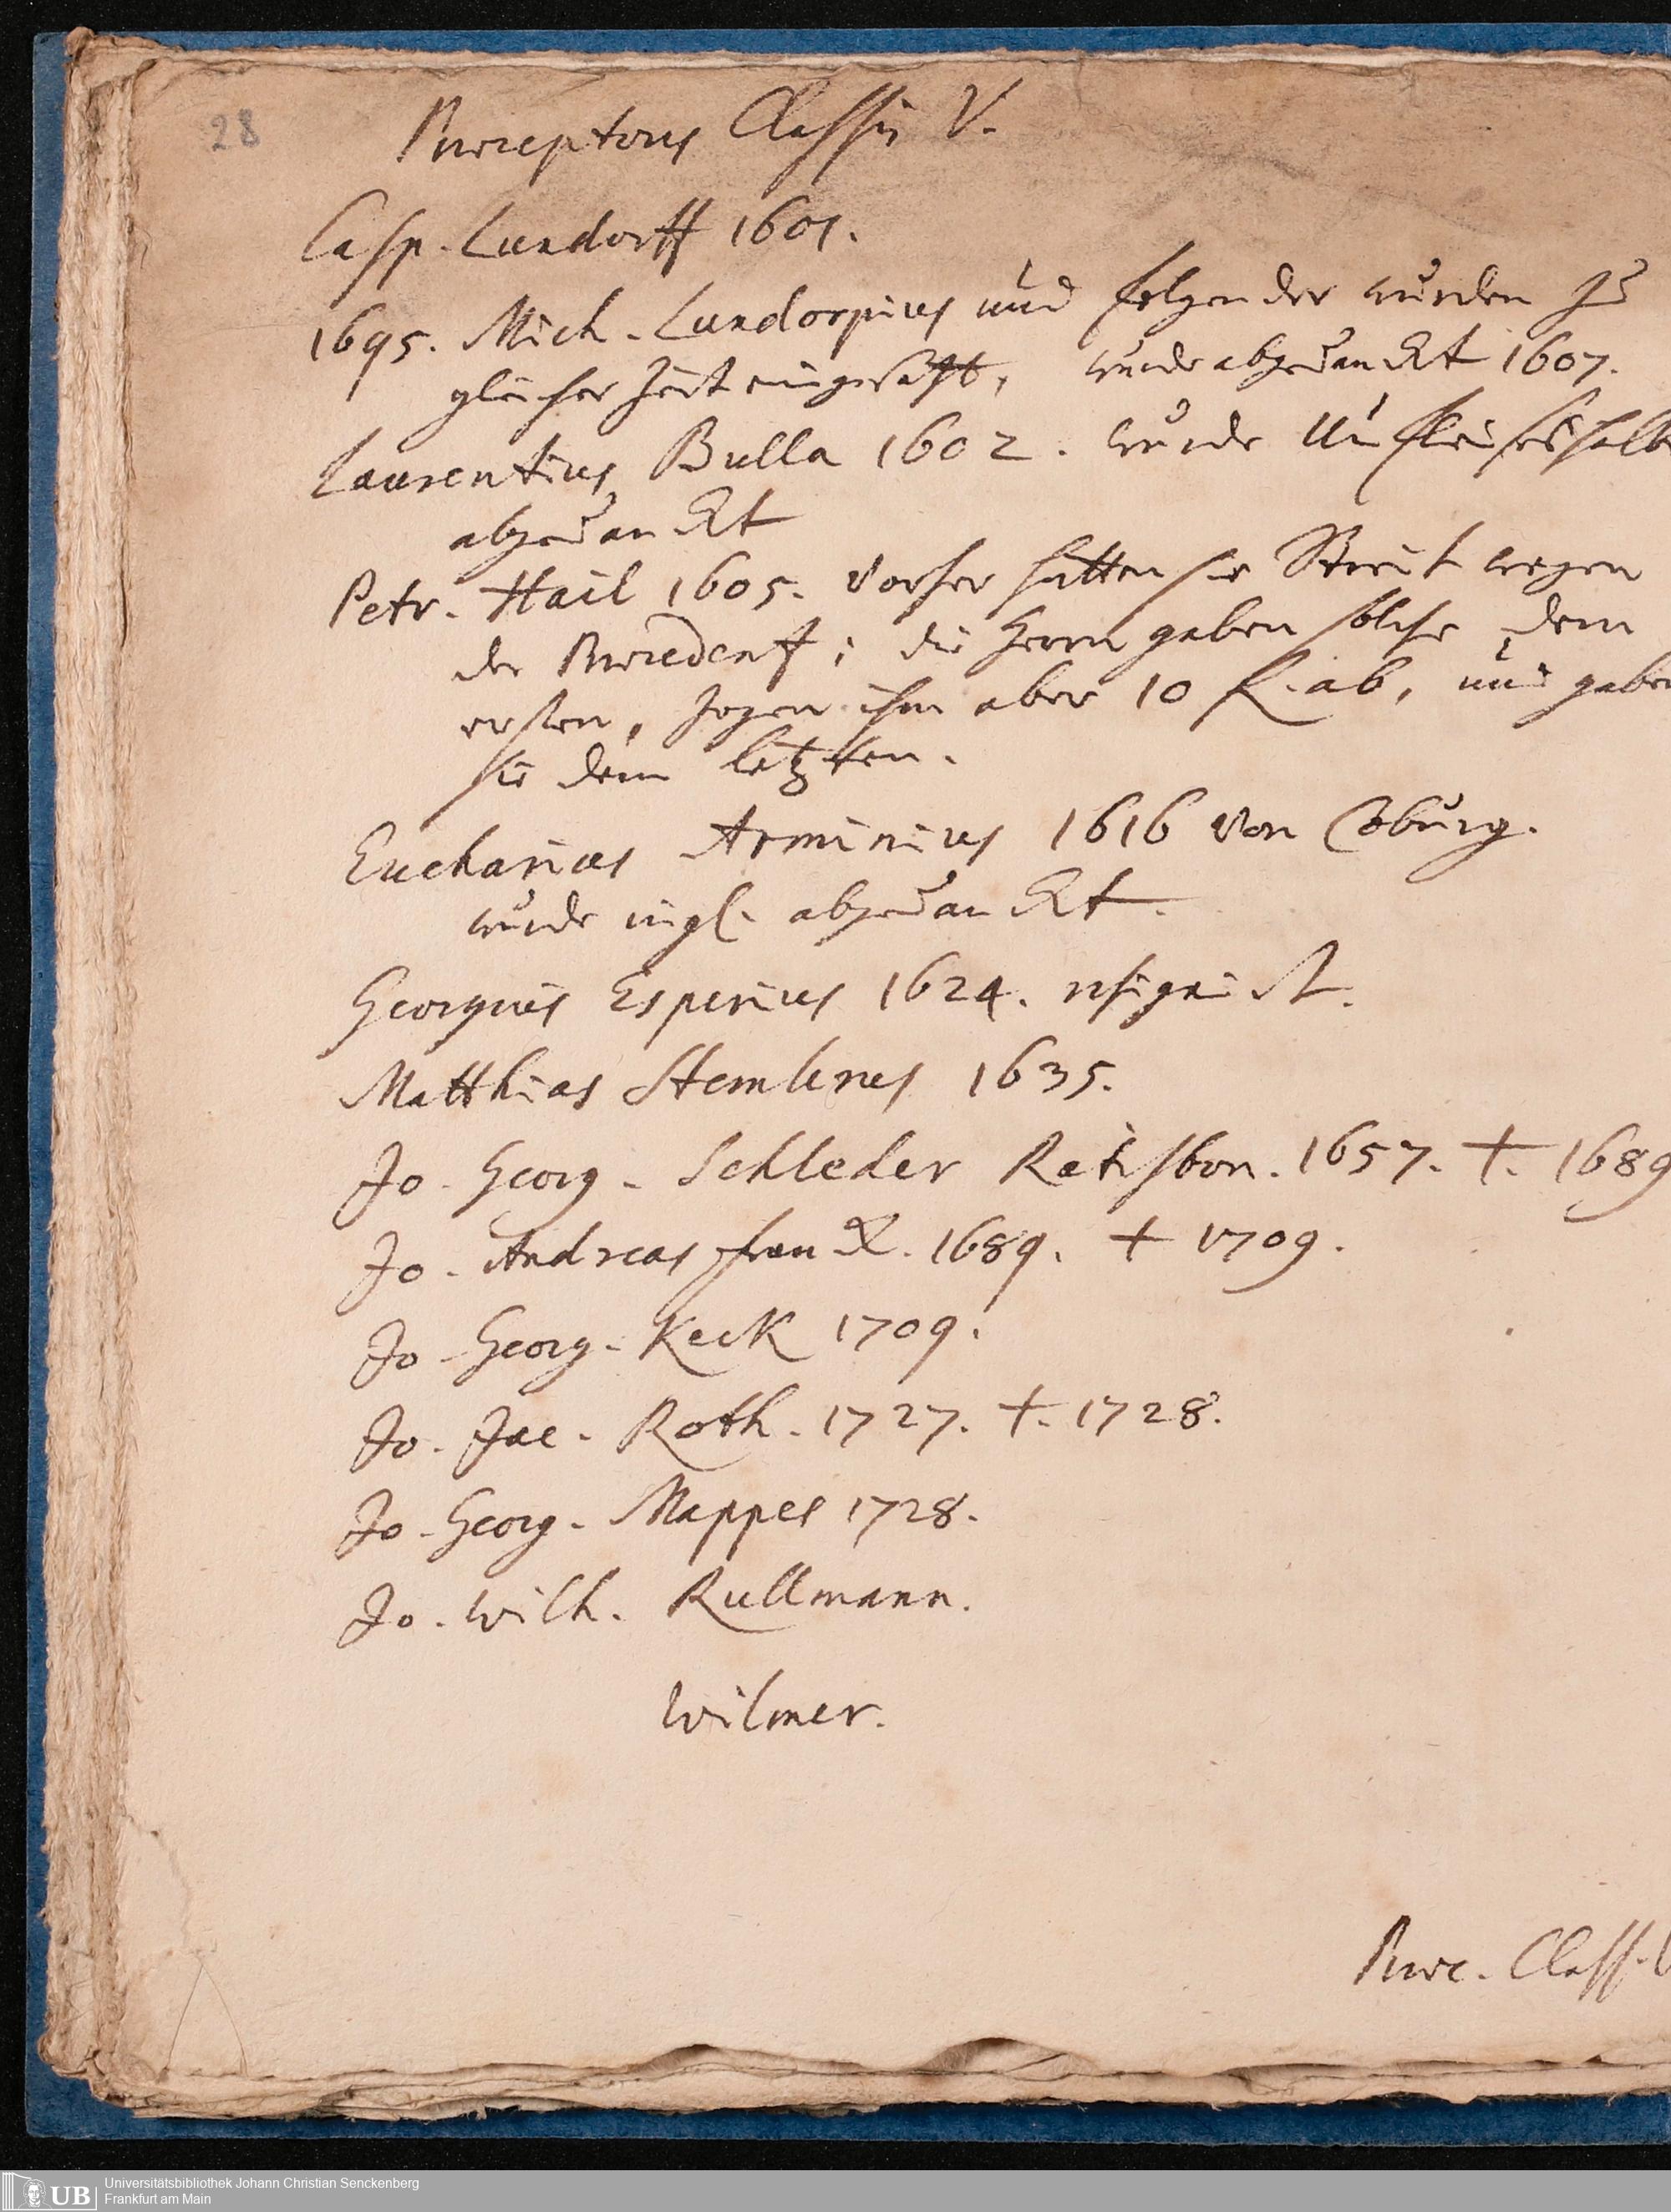 28
Praeceptores Classis V.
Casp. Lundorff 1601.
1695. Mich. Lundorpius und folgender wurden zu
gleicher Zeit eingesetzt, wurde abgedanckt 1607.
Laurentius Bulla 1602. wurde Unfleisses halb
abgedanckt
Petr. Hail 1605. vorher hatten sie Streit wegen
der Praecedentz; die Herrn gaben solche dem
ersten, zogen ihm aber 10 fl. ab, und gaben
sie dem letzten.
Eucharius Arminius 1616 von Coburg.
wurde ingl. abgedanckt.
Georgius Esperius 1624. resignirt.
Matthias Stemlerus 1635.
Jo. Georg. Schleder Ratisbon. 1657. †. 1689
Jo. Andreas Franck. 1689. † 1709.
Jo. Georg. Keck 1709.
Jo. Jac. Roth. 1727. †. 1728.
Jo. Georg. Mappes 1728.
Jo. Wilh. Rullmann.
Wilmer.
Praec. Class. V
UB Universitätsbibliothek Johann Christian Senckenberg
Frankfurt am Main